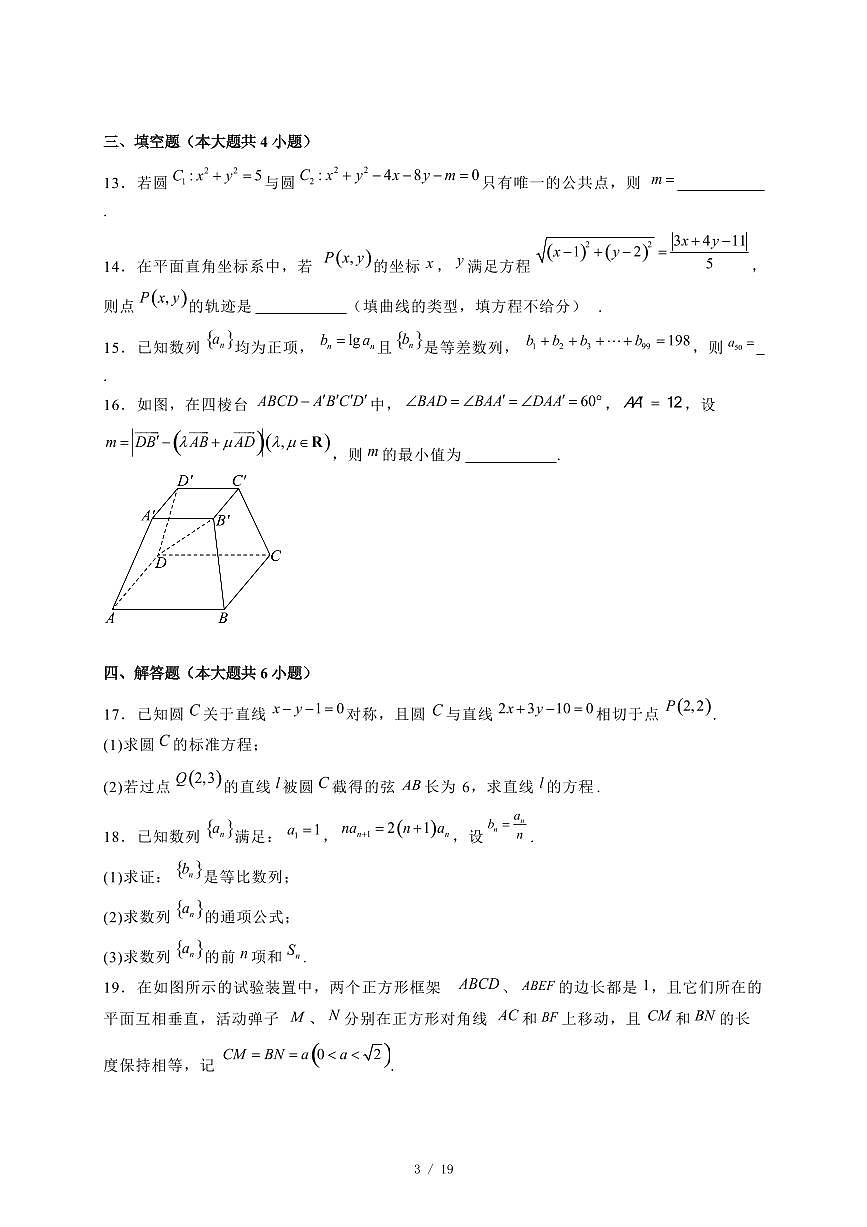 三、填空题（本大题共 4 小题）
13．若圆 C₁ : x² + y² = 5 与圆 C₂ : x² + y² − 4x − 8y − m = 0 只有唯一的公共点，则 m = ____________
.
14．在平面直角坐标系中，若 P(x, y) 的坐标 x，y 满足方程 √((x−1)² + (y−2)²) = |3x + 4y − 11| / 5，
则点 P(x, y) 的轨迹是 ____________（填曲线的类型，填方程不给分）．
15．已知数列 {aₙ} 均为正项，bₙ = lg aₙ 且 {bₙ} 是等差数列，b₁ + b₂ + b₃ + ⋯ + b₉₉ = 198，则 a₅₀ = _
.
16．如图，在四棱台 ABCD − A′B′C′D′ 中，∠BAD = ∠BAA′ = ∠DAA′ = 60°，AA′ = 12，设
m = |DB′ − (λAB + μAD)|(λ, μ ∈ R)，则 m 的最小值为 ____________.
D′ C′
A′ B′
D C
A B
四、解答题（本大题共 6 小题）
17．已知圆 C 关于直线 x − y − 1 = 0 对称，且圆 C 与直线 2x + 3y − 10 = 0 相切于点 P(2, 2).
(1)求圆 C 的标准方程；
(2)若过点 Q(2,3) 的直线 l 被圆 C 截得的弦 AB 长为 6，求直线 l 的方程．
18．已知数列 {aₙ} 满足：a₁ = 1，naₙ₊₁ = 2(n + 1)aₙ，设 bₙ = aₙ / n．
(1)求证：{bₙ} 是等比数列；
(2)求数列 {aₙ} 的通项公式；
(3)求数列 {aₙ} 的前 n 项和 Sₙ．
19．在如图所示的试验装置中，两个正方形框架 ABCD、ABEF 的边长都是 1，且它们所在的
平面互相垂直，活动弹子 M、N 分别在正方形对角线 AC 和 BF 上移动，且 CM 和 BN 的长
度保持相等，记 CM = BN = a(0 < a < √2).
3 / 19